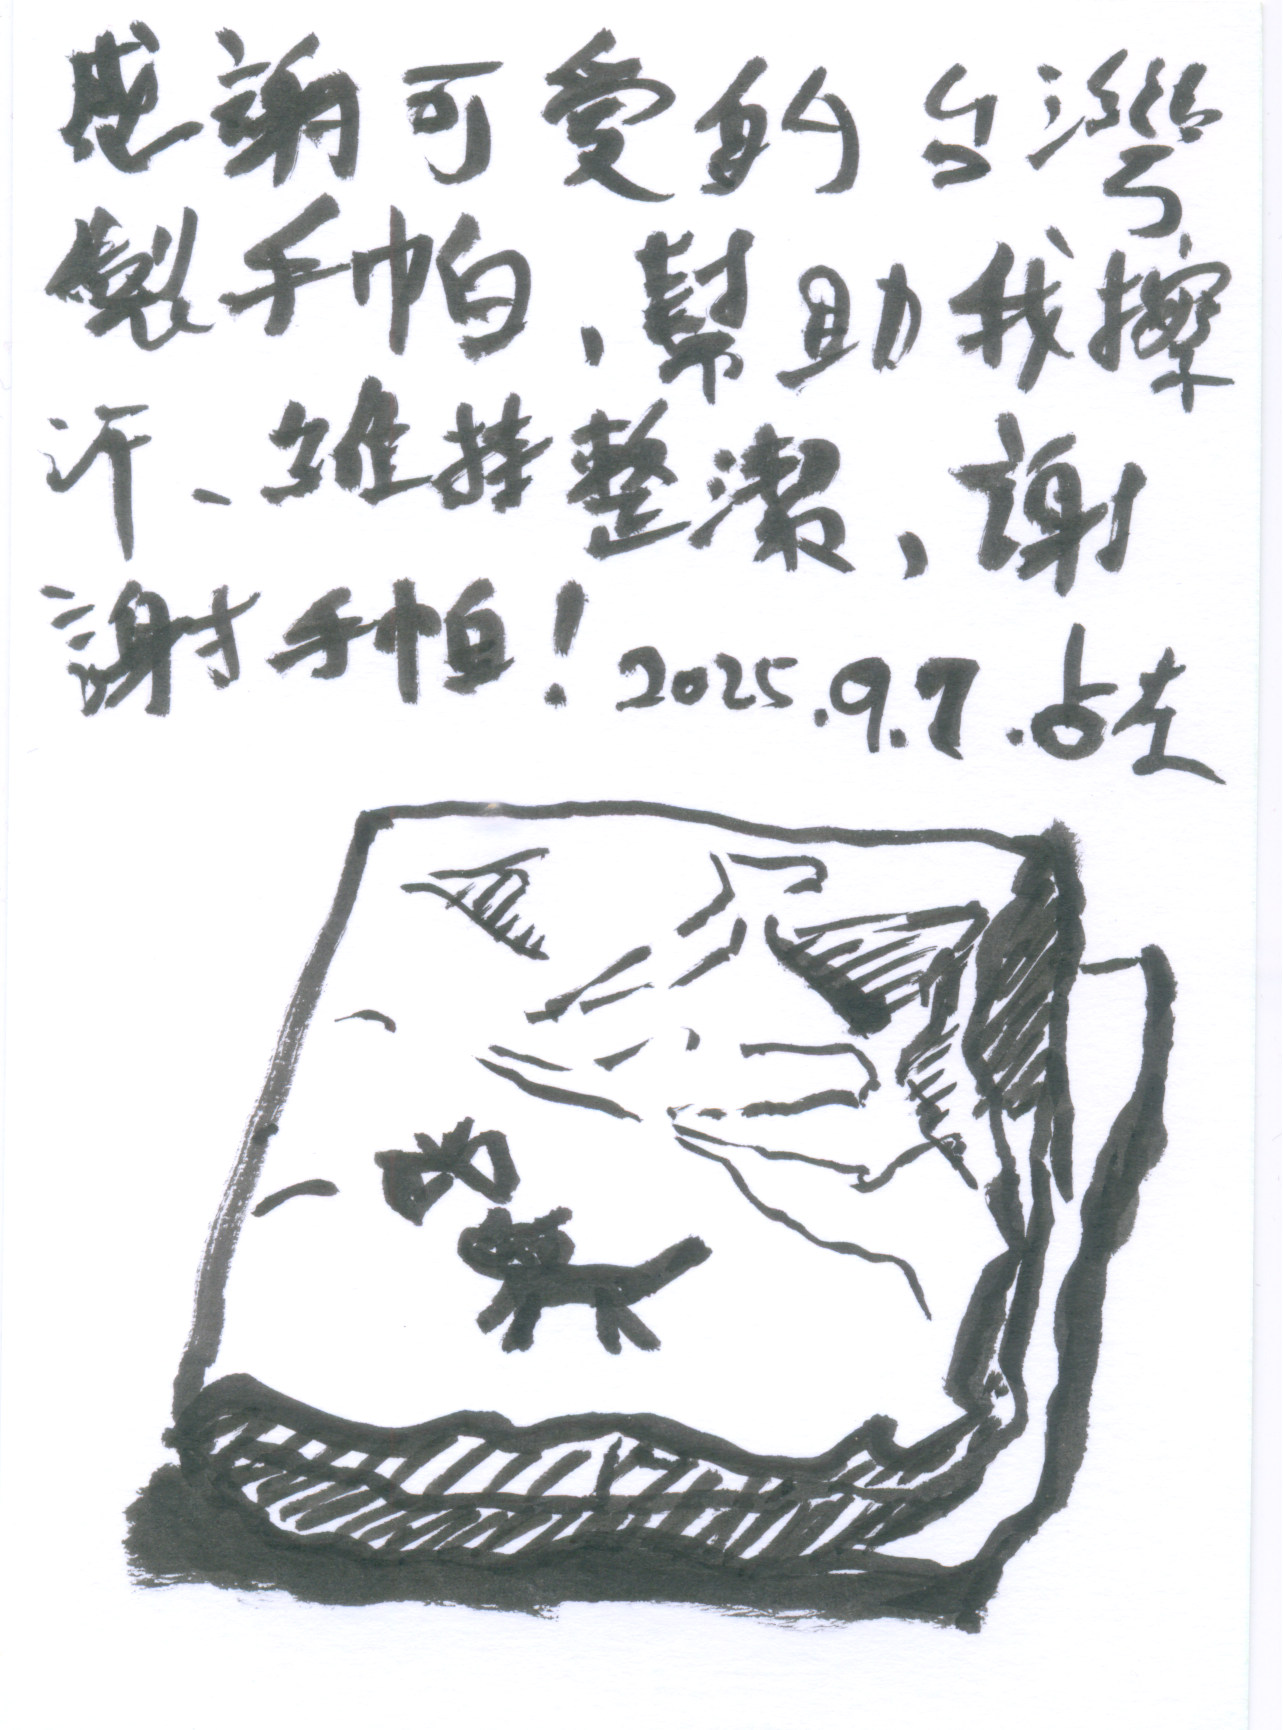 感謝可愛的台灣
製手帕,幫助我擦
汗、維持整潔,謝
謝手帕!2025.9.7.占左